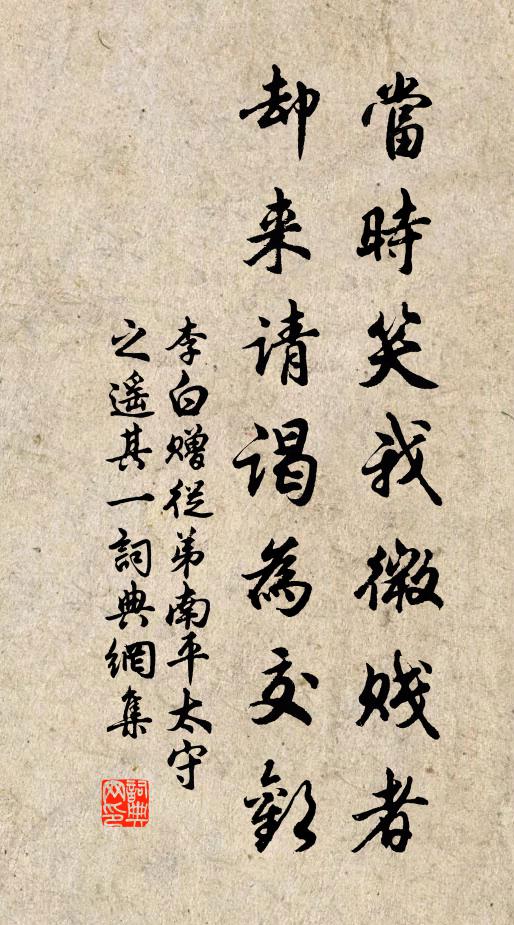 當時笑我微賤者
却来請謁為交歡
李白贈從弟南平太守
之遥其一詞典網集
詞典網印